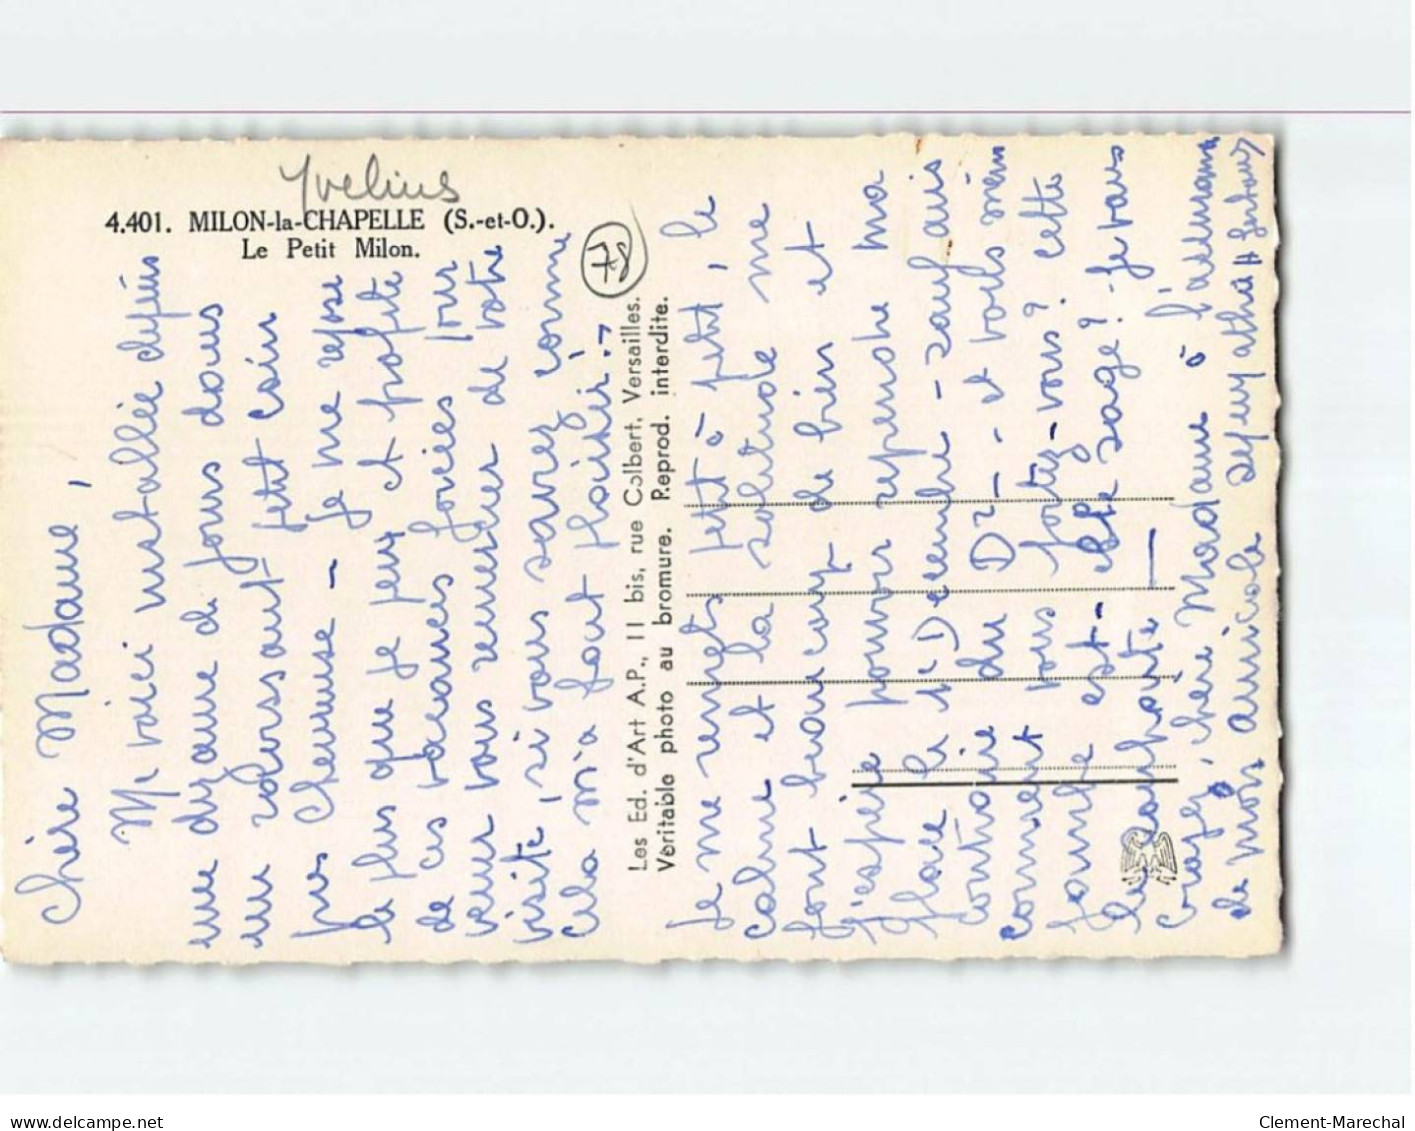 Yvelines
4.401. MILON-la-CHAPELLE (S.-et-O.).
Le Petit Milon.
78
Chère Madame,
Me voici installée depuis
une dizaine de jours dans
un ravissant petit coin
près Chevreuse – Je me repose
le plus que je peux et profite
de ces vacances forcées pour
venir vous remercier de votre
visite, si vous savez comme
cela m'a fait plaisir. –
Les Ed. d'Art A.P., 11 bis, rue Colbert, Versailles.
Véritable photo au bromure. Reprod. interdite.
Je me remets petit à petit, le
calme et la solitude me
font beaucoup de bien et
J'espère pouvoir reprendre ma
place le 1er Décembre – sauf avis
contraire du Dr – et vous même
comment vous portez-vous? cette
jambe est-elle sage? – Je vous
le souhaite –
Croyez, chère Madame à l'assurance
de mon amicale sympathie
delcampe.net
Clement-Marechal